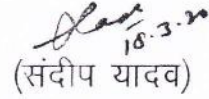 18.3.20
(संदीप यादव)